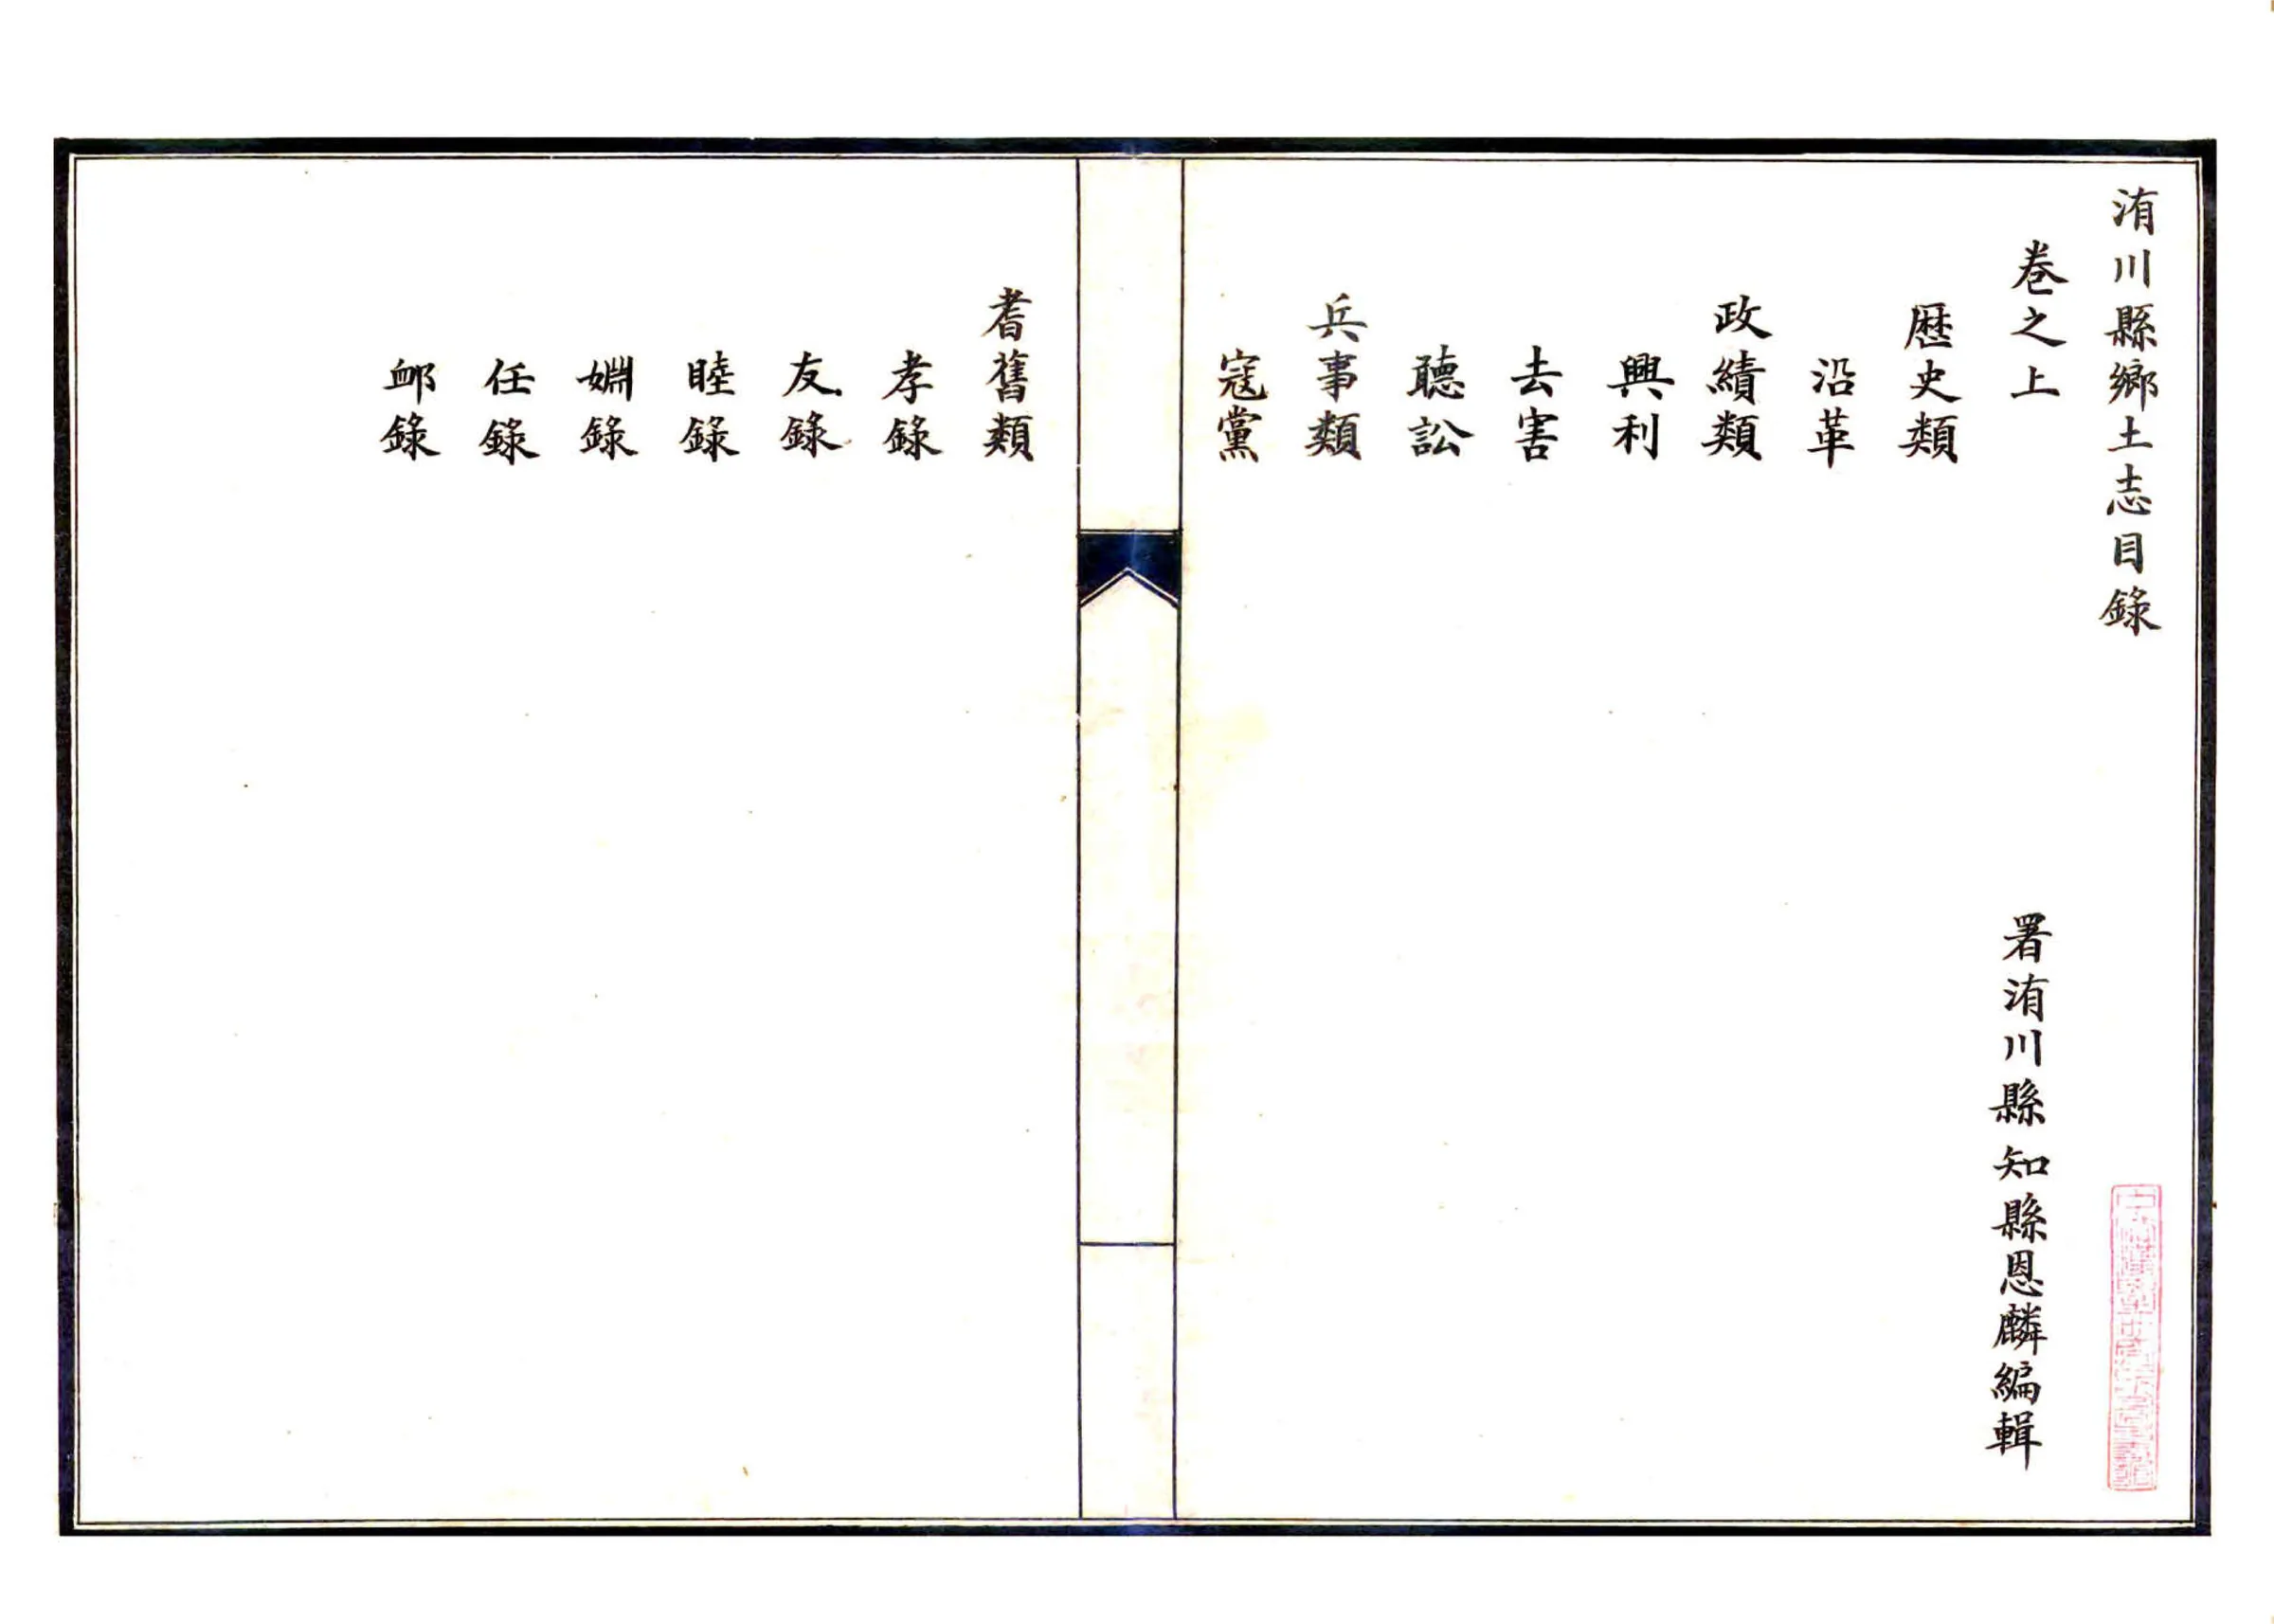 洧川縣鄉土志目錄
卷之上
署洧川縣知縣恩麟編輯
歷史類
沿革
政績類
興利
去害
聽訟
兵事類
寇黨
耆舊類
孝錄
友錄
睦錄
婣錄
任錄
卹錄